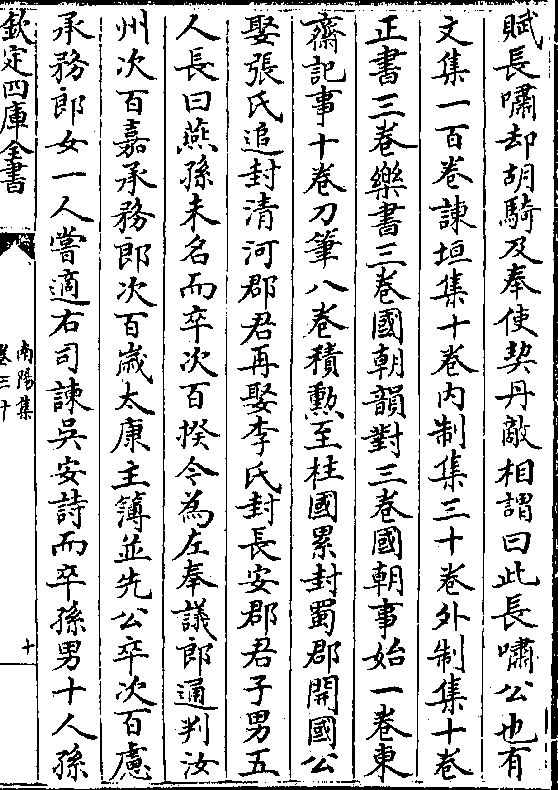 賦長嘯却胡騎及奉使契丹敵相謂曰此長嘯公也有
文集一百卷諫垣集十卷内制集三十卷外制集十卷
正書三卷樂書三卷國朝韻對三卷國朝事始一卷東
齋記事十卷刀筆八卷積勲至柱國累封蜀郡開國公
娶張氏追封清河郡君再娶李氏封長安郡君子男五
人長曰燕孫未名而卒次百揆令為左奉議郎通判汝
州次百嘉承務郎次百歳太康主簿並先公卒次百慮
承務郎女一人嘗適右司諫吳安詩而卒孫男十人孫
欽定四庫全書
南陽集
卷三十
十